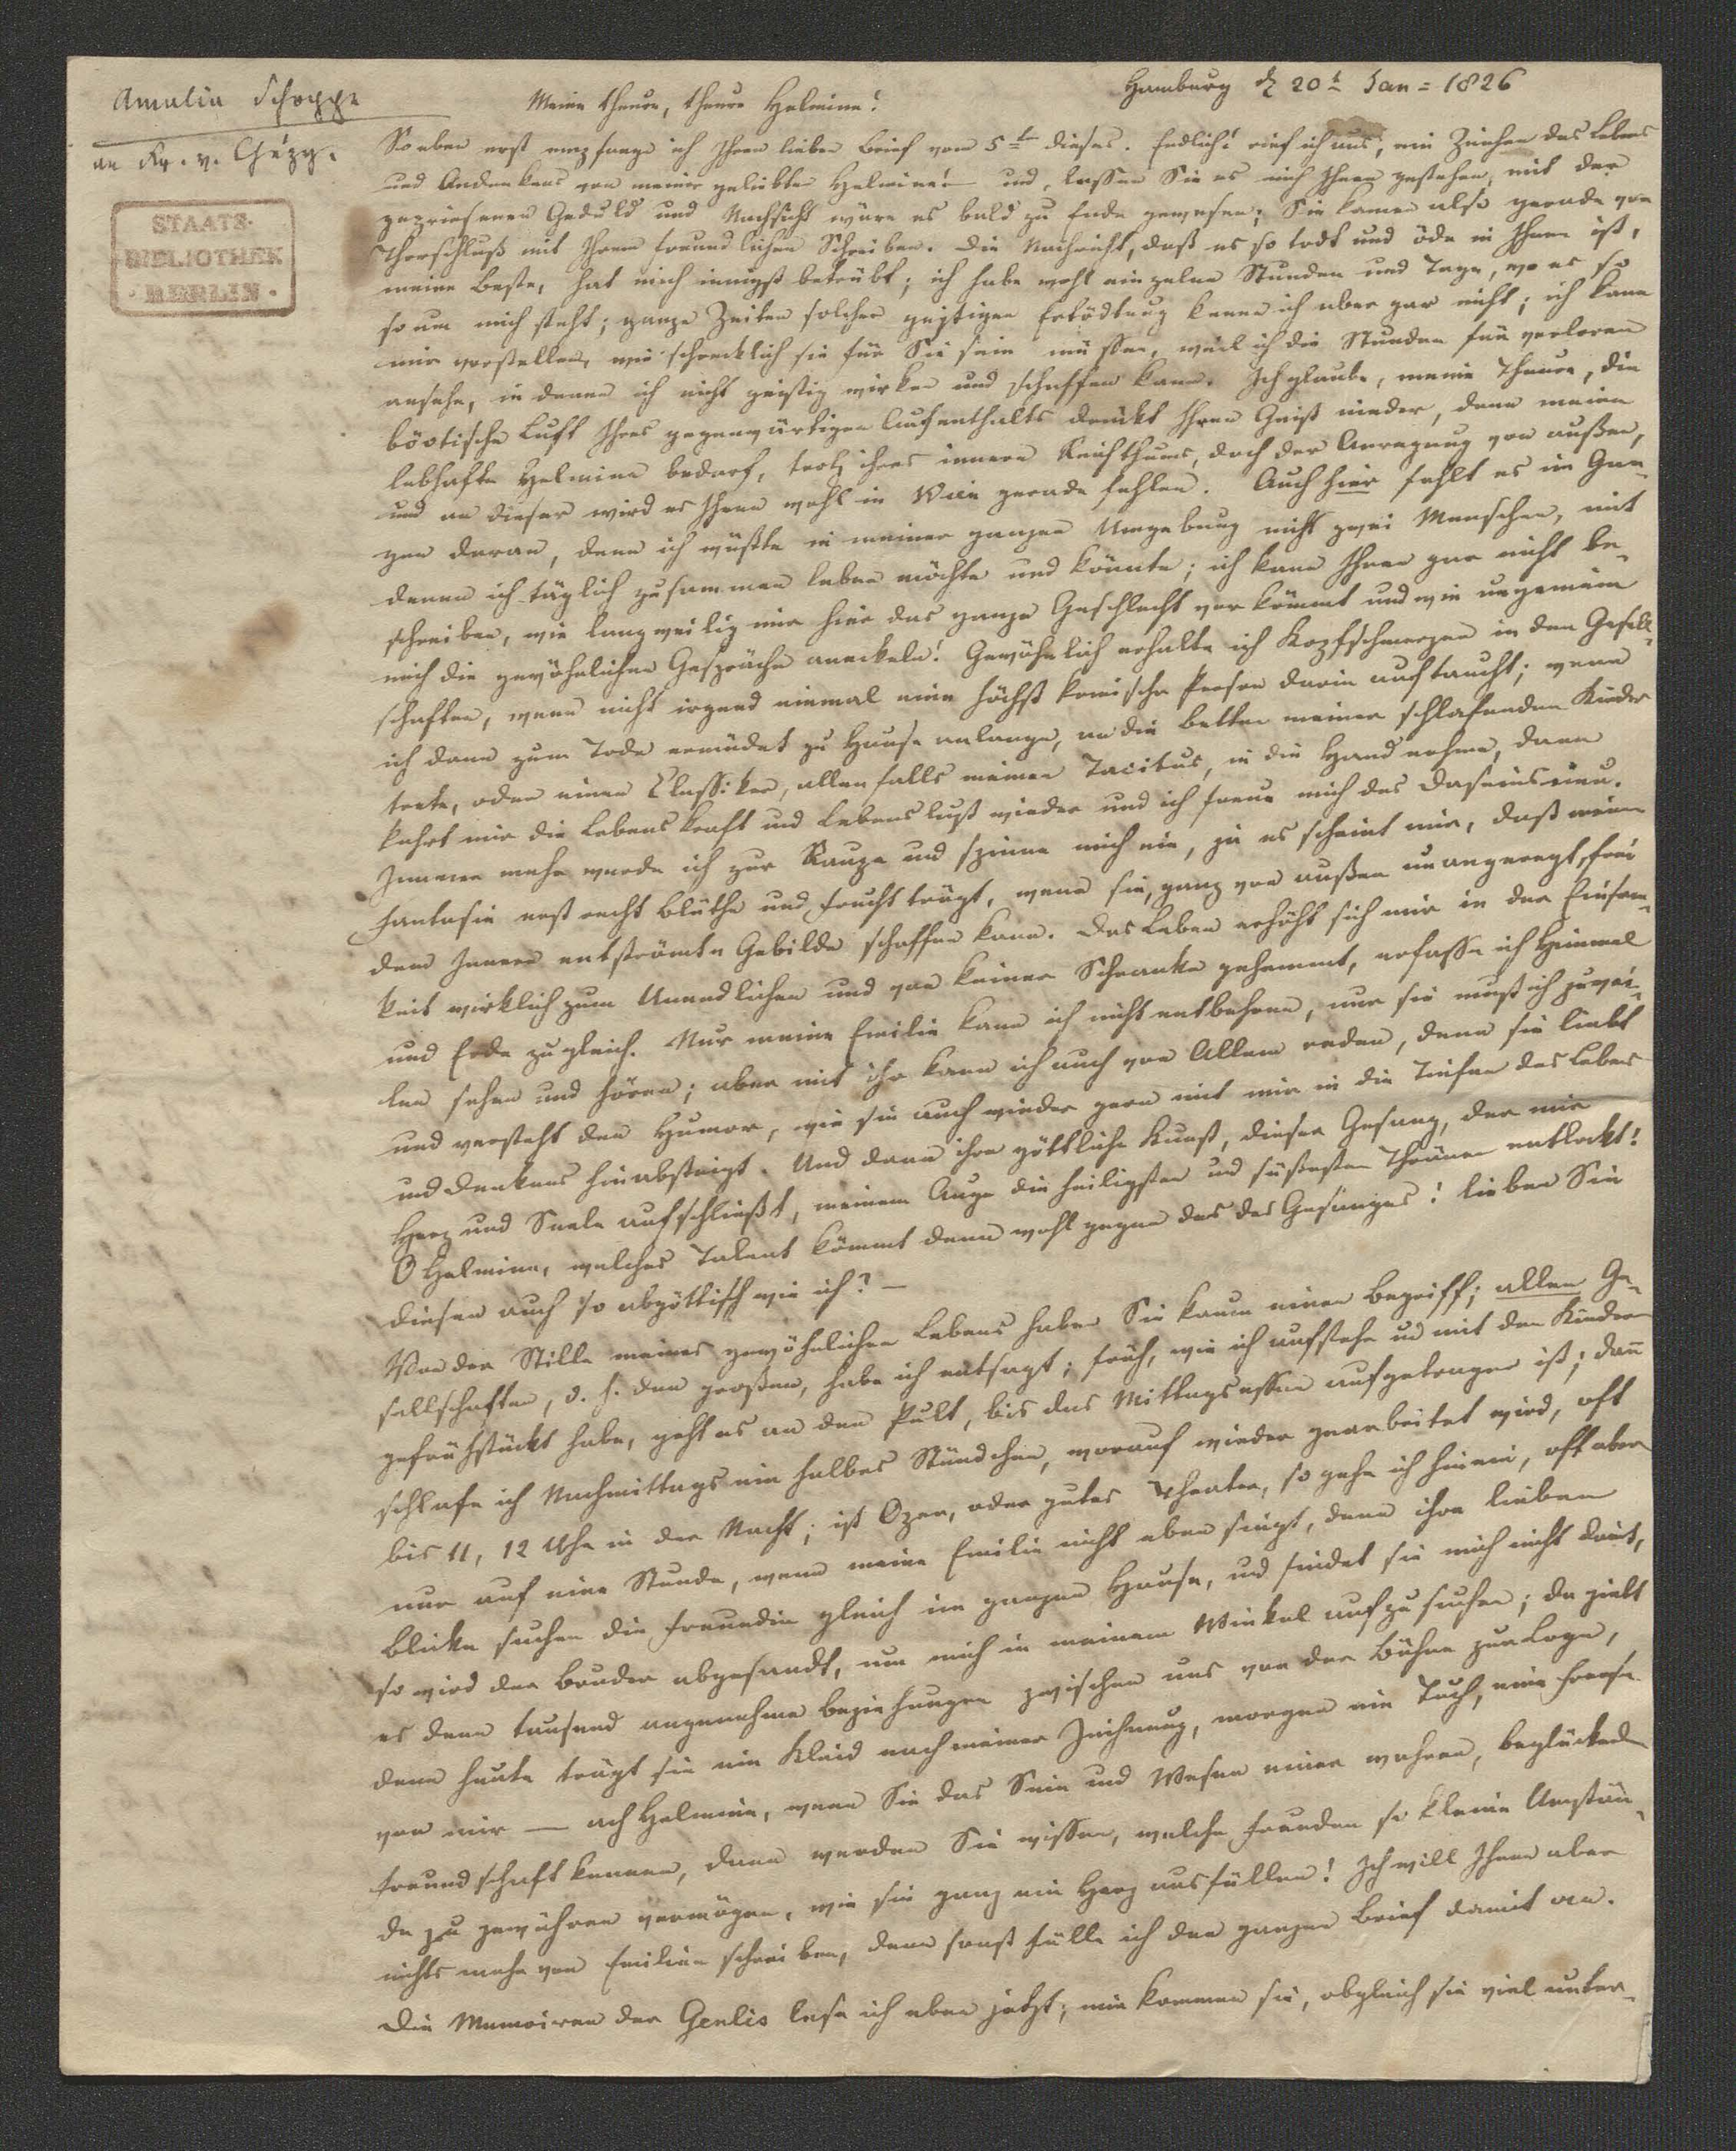 Amalia Schoppe
an Fr. v. Chézy.
STAATS-
BIBLIOTHEK
· BERLIN ·
Hamburg d 20t Jan = 1826
Meine theure, theure Helmina!
So eben erst empfange ich Ihren lieben Brief vom 5ten dieses. Endlich! rief ich aus, ein Zeichen des Lebens
und Andenkens von meiner geliebten Helmina! – und, lassen Sie es mich Ihnen gestehen, mit der
gepriesenen Geduld und Nachsicht wäre es bald zu Ende gewesen; Sie kamen also gerade vor
Thorschluß mit Ihrem freundlichen Schreiben. Die Nachricht, daß es so todt und öde in Ihnen ist,
meine Beste, hat mich innigst betrübt; ich habe wohl einzelne Stunden und Tage, wo es so
so um mich steht; ganze Zeiten solcher geistigen Ertödtung kenne ich aber gar nicht; ich kann
mir vorstellen, wie schrecklich sie für Sie sein müssen, weil ich die Stunden für verloren
ansehe, in denen ich nicht geistig wirken und schaffen kann. Ich glaube, meine Theure, die
böotische Luft Ihres gegenwärtigen Aufenthalts drückt Ihren Geist nieder, denn meine
lebhafte Helmina bedarf, trotz ihres innern Reichthums, doch der Anregung von außen,
und an dieser wird es Ihnen wohl in Wien gerade fehlen. Auch hier fehlt es im Gan-
zen daran, denn ich wüßte in meiner ganzen Umgebung nicht zwei Menschen, mit
denen ich täglich zusammen leben möchte und könnte; ich kann Ihnen gar nicht be-
schreiben, wie langweilig mir hier das ganze Geschlecht vorkömmt und wie ungemein
mich die gewöhnlichen Gespräche anekeln! Gewöhnlich erhalte ich Kopfschmerzen in den Gesell-
schaften, wenn nicht irgend einmal eine höchst komische Person darin auftaucht; wenn
ich dann zum Tode ermüdet zu Hause anlange, an die Betten meiner schlafenden Kinder
trete, oder einen Classiker, allenfalls meinen Tacitus, in die Hand nehme, dann
kehrt mir die Lebenskraft und Lebenslust wieder und ich freue mich des Daseins neu.
Immer mehr werde ich zur Raupe und spinne mich ein, ja es scheint mir, daß meine
Fantasie erst recht Blüthe und Frucht trägt, wenn sie, ganz von außen unangeregt, frei
dem Innern entströmte Gebilde schaffen kann. Das Leben erhöht sich mir in der Einsam-
keit wirklich zum Unendlichen und von keiner Schranke gehemmt, erfasse ich Himmel
und Erde zugleich. Nur meine Emilie kann ich nicht entbehren, nur sie muß ich zuwei-
len sehen und hören; aber mit ihr kann ich auch von Allem reden, denn sie liebt
und versteht den Humor, wie sie auch wieder gern mit mir in die Tiefen des Lebens
und Denkens hinabsteigt. Und dann ihre göttliche Kunst, dieser Gesang, der mir
Herz und Seele aufschließt, meinem Auge die heiligsten und süßesten Thränen entlockt!
O Helmina, welches Talent kömmt denn wohl gegen das des Gesanges! lieben Sie
diesen auch so abgöttisch wie ich? –
Von der Stille meines gewöhnlichen Lebens haben Sie kaum einen Begriff; allen Ge-
sellschaften, d. h. den großen, habe ich entsagt; früh, wie ich aufstehe und mit den Kindern
gefrühstückt habe, geht es an den Pult, bis das Mittagsessen aufgetragen ist; dann
schlafe ich Nachmittags ein halbes Stündchen, worauf wieder gearbeitet wird, oft
bis 11, 12 Uhr in der Nacht; ist Oper, oder gutes Theater, so gehe ich hinein, oft aber
nur auf eine Stunde, wenn meine Emilie nicht eben singt, denn ihre lieben
Blicke suchen die Freundin gleich im ganzen Hause, und findet sie mich nicht darin,
so wird der Bruder abgesandt, um mich in meinem Winkel aufzusuchen; da giebt
es denn tausend angenehme Beziehungen zwischen uns von der Bühne zur Loge,
denn heute trägt sie ein Kleid nach meiner Zeichnung, morgen ein Tuch, eine
von mir — ach Helmina, wenn Sie das Sein und Wesen einer wahren, beglückenden
Freundschaft kennen, dann werden Sie wissen, welche Freuden so kleine Umstän-
de zu gewähren vermögen, wie sie ganz ein Herz ausfüllen! Ich will Ihnen aber
nichts mehr von Emilien schreiben, denn sonst fülle ich den ganzen Brief damit an.
Die Memoiren der Genlis lese ich eben jetzt; mir kommen sie, obgleich sie viel unter-